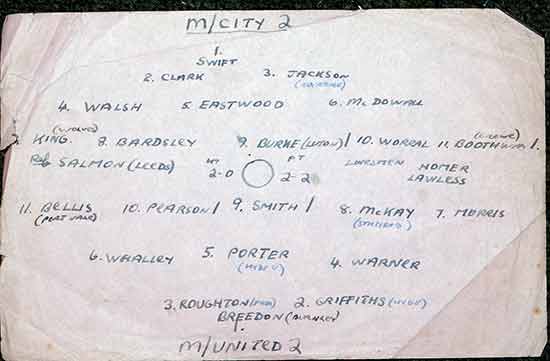 M/CITY 2
1. SWIFT
2. CLARK 3. JACKSON
4. WALSH 5. EASTWOOD 6. McDOWALL
(WOLVES) (CREWE)
7 KING. 8. BARDSLEY 9. BURKE (LUTON) / 10. WORRAL 11. BOOTH /.
Ref SALMON (LEEDS) HT 2-0 FT 2-2 LINESMEN HOMER LAWLESS
11. BELLIS 10. PEARSON / 9. SMITH / 8. McKAY 7. MORRIS
(PORT VALE)
6. WHALLEY 5. PORTER 4. WARNER
3. ROUGHTON 2. GRIFFITHS
BREEDON (BURNLEY)
M/UNITED 2